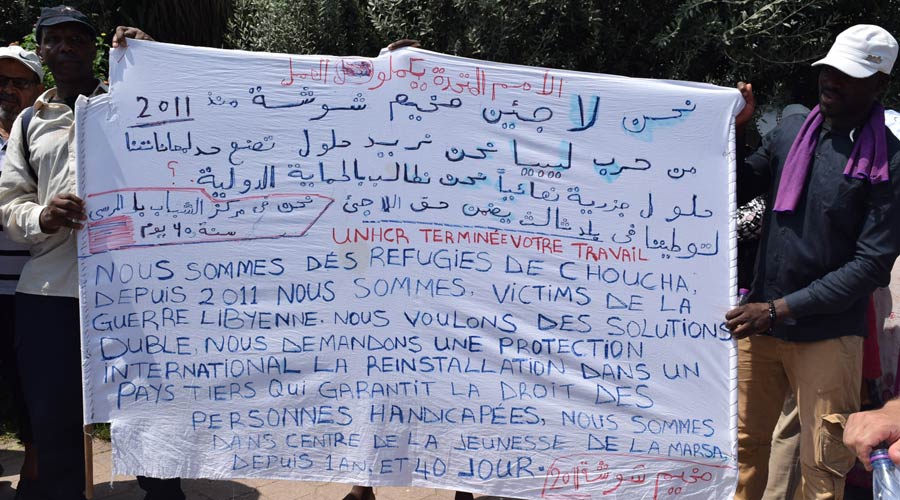 الأمم المتحدة يكملو العمل
نحن لا جئين مخيم شوشة منذ 2011
من حرب ليبيا نحن نريد حلول تضع حد لمعاناتنا
حلول جذرية نهائياً نحن نطالب بالحماية الدولية . ؟
لتوطيننا في بلد ثالث يضمن حق اللاجئ
نحن في مركز الشباب بالمرسى
سنة و 40 يوم
UNHCR TERMINÉE VOTRE TRAVAIL
NOUS SOMMES DES REFUGIES DE CHOUCHA,
DEPUIS 2011 NOUS SOMMES, VICTIMS DE LA
GUERRE LIBYENNE. NOUS VOULONS DES SOLUTIONS
DUBLE, NOUS DEMANDONS UNE PROTECTION
INTERNATIONAL LA REINSTALLATION DANS UN
PAYS TIERS QUI GARANTIT LA DROIT DES
PERSONNES HANDICAPÉES, NOUS SOMMES
DANS CENTRE DE LA JEUNESSE DE LA MARSA
DEPUIS 1 AN, ET 40 JOUR.
مخيم شوشة